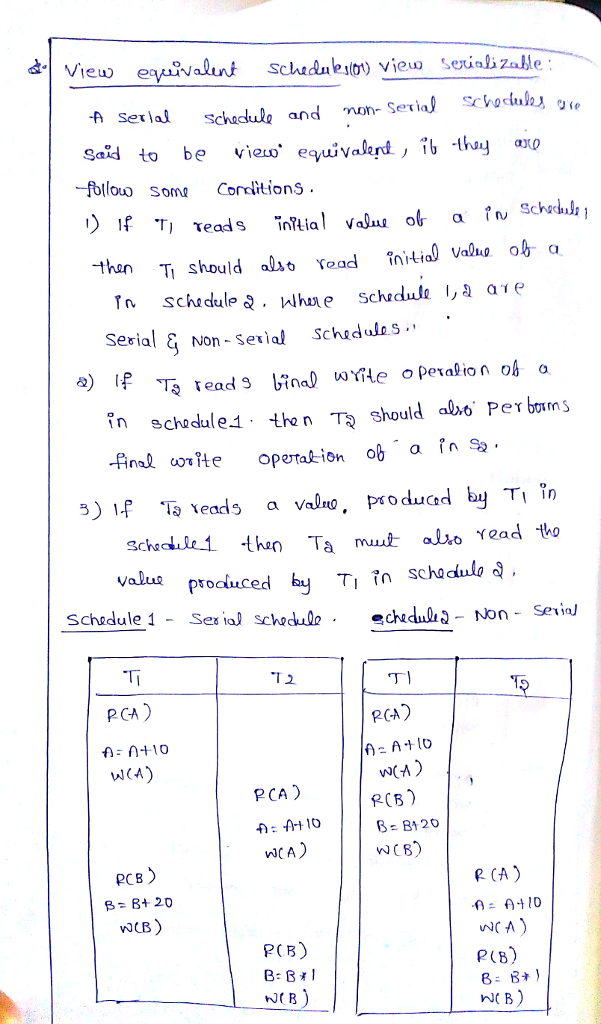 View equivalent schedules(or) view serializable:
A serial schedule and non-serial schedules are
said to be view equivalent, if they are
follow some Conditions.
1) If T1 reads initial value of a in schedule 1
then T1 should also read initial value of a
in schedule 2. Where schedule 1,2 are
serial & Non-serial schedules.
2) If T2 reads final write operation of a
in schedule1. then T2 should also performs
final write operation of a in S2.
3) If T2 reads a value, produced by T1 in
schedule 1 then T2 must also read the
value produced by T1 in schedule 2.
Schedule 1 - Serial schedule. schedule2 - Non - Serial
T1 T2 T1 T2
R(A) R(A)
A=A+10 A=A+10
W(A) W(A)
R(A) R(B)
A=A+10 B=B+20
W(A) W(B)
R(B) R(A)
B=B+20 A=A+10
W(B) W(A)
R(B) R(B)
B=B*1 B=B*1
W(B) W(B)